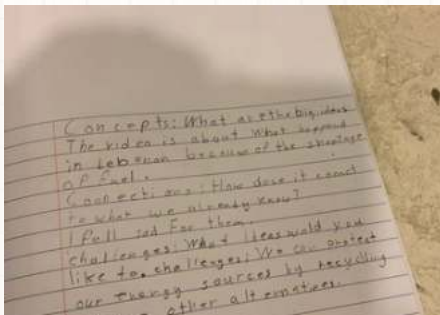 Concepts: What are the big ideas
The video is about what happend
in Lebanon because of the shortage
of fuel.
Connections: How dose it connect
to what we already know?
I fell sad For them.
challenges: What ideas would you
like to challenges; We can protect
our energy sources by recycling
other alternatives.